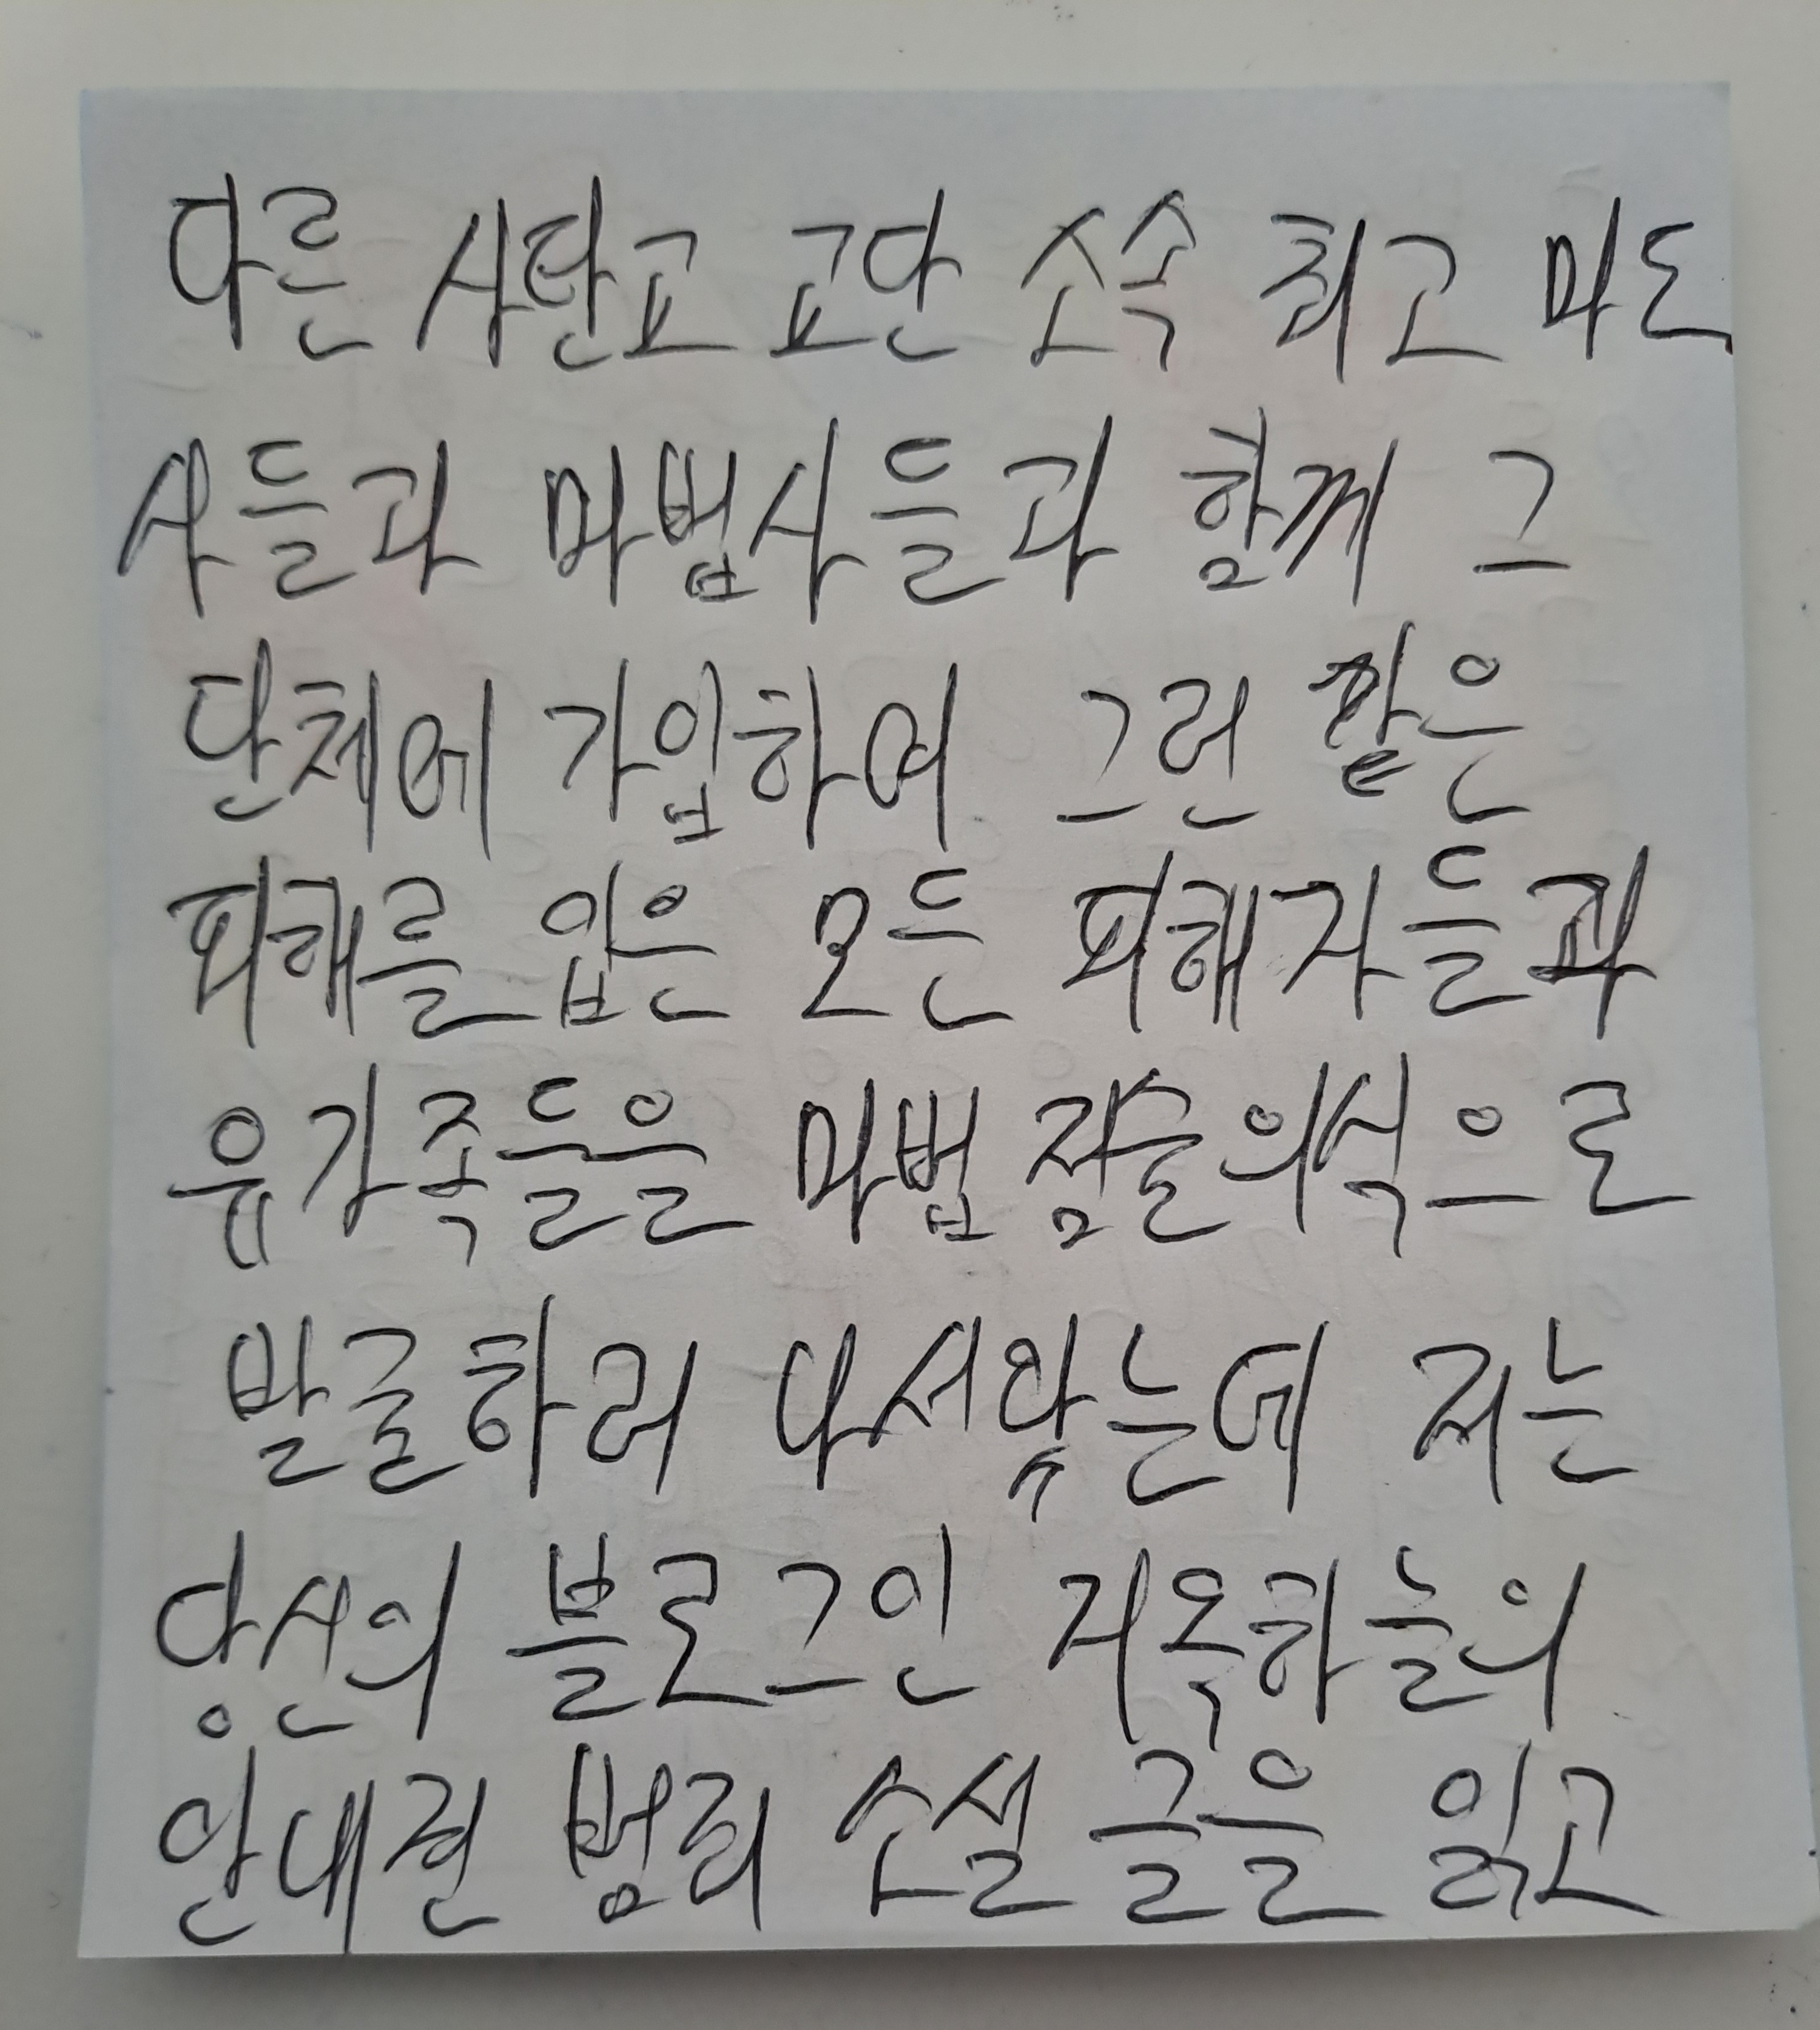 다른 사탄교 교단 소속 최고 마도
사들과 마법사들과 함께 그
단체에 가입하여 그런 같은
피해를 입은 모든 피해자들과
유가족들을 마법 점술의식으로
발굴하러 나서왔는데 저는
당신의 블로그인 지옥하늘의
안내권 범죄 소설 글을 읽고